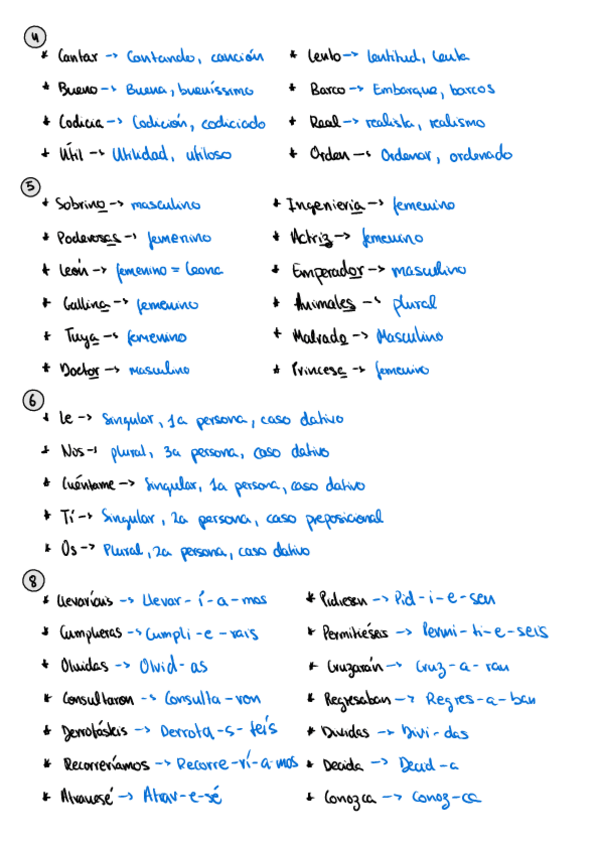 4
* Cantar -> Cantando, canción
* Bueno -> Buena, bueníssimo
* Codicia -> Codición, codiciado
* Útil -> Utilidad, utiloso
* Lento -> lentitud, lenta
* Barco -> Embarque, barcos
* Real -> realista, realismo
* Orden -> Ordenar, ordenado
5
* Sobrino -> masculino
* Poderosas -> femenino
* León -> femenino = leona
* Gallina -> femenino
* Tuya -> femenino
* Doctor -> masculino
* Ingenieria -> femenino
* Actriz -> femenino
* Emperador -> masculino
* Animales -> plural
* Malvado -> Masculino
* Princesa -> femenino
6
* Le -> Singular, 1a persona, caso dativo
* Nos -> plural, 3a persona, caso dativo
* Cuéntame -> Singular, 1a persona, caso dativo
* Tí -> Singular, 2a persona, caso preposicional
* Os -> Plural, 2a persona, caso dativo
8
* Llevaríais -> Llevar - í - a - mos
* Cumplieras -> Cumpli - e - rais
* Olvidas -> Olvid - as
* Consultaron -> Consulta - ron
* Derrotásteis -> Derrota - s - teís
* Recorreríamos -> Recorre - rí - a - mos
* Atravesé -> Atrav - e - sé
* Pidiesen -> Pid - i - e - sen
* Permitiéseis -> Permi - ti - e - seis
* Cruzarán -> Cruz - a - ran
* Regresaban -> Regres - a - ban
* Dividas -> Divi - das
* Decida -> Decid - a
* Conozca -> Conoz - ca